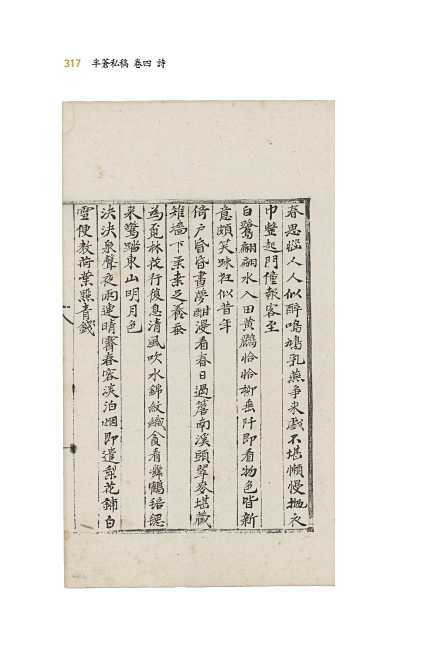 317 半蒼私稿 卷四 詩
春思惱人人似醉鳴鳩乳燕爭來戲不堪懶慢拋衣
巾整起門僮報客至
白鷺翩翩水入田黃鸝恰恰柳垂阡即看物色皆新
意頗笑踈狂似昔年
倚户昏昏晝夢酣漫看春日過簷南溪頭翠麥堪藏
雉墻下柔桑足養蚕
為覓林花行復息清風吹水錦紋織貪看舞鶴
來驚踏東山明月色
決決泉聲夜雨連晴霽春容淡泊烟即遣梨花鋪白
雪便教荷葉點青錢